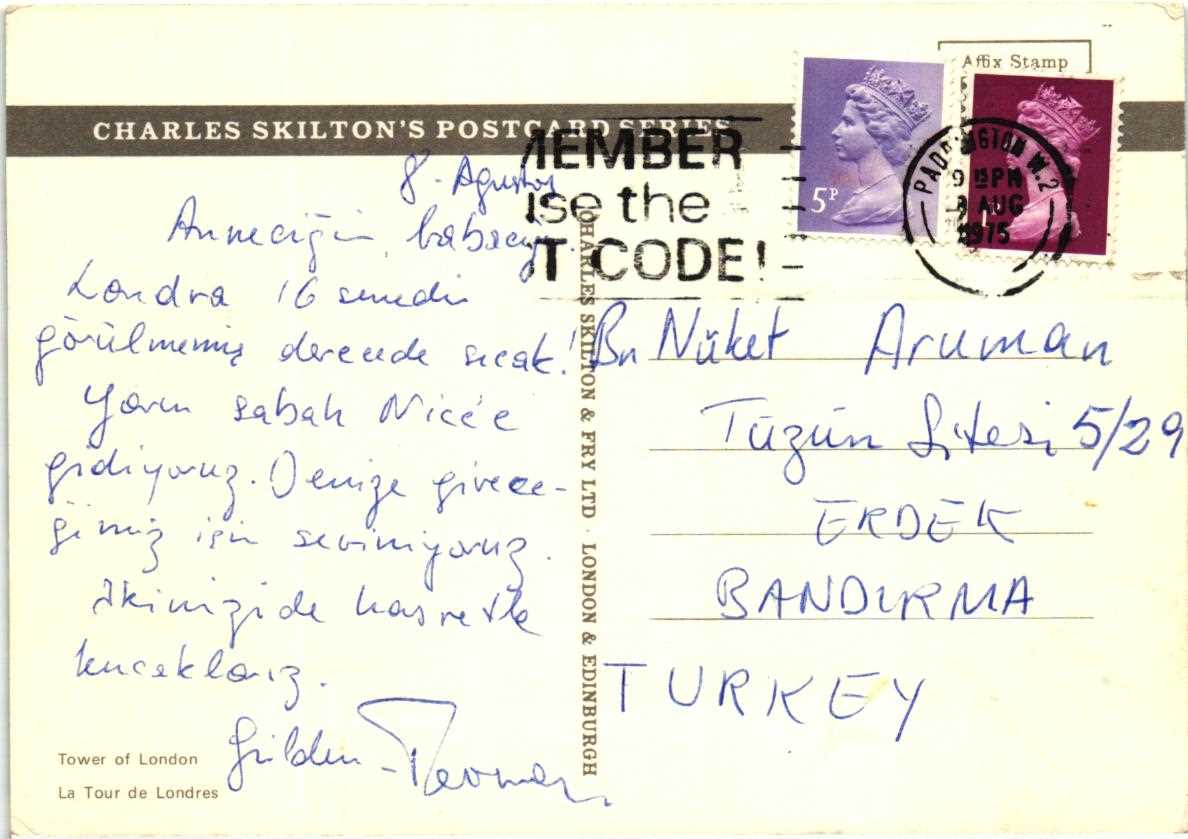 Affix Stamp
CHARLES SKILTON'S POSTCARD SERIES
MEMBER
use the
T CODE!
5P
PADDINGTON W.2
9 15 PM
8 AUG
1975
8 - Agustos
Anneciğim, babacığım
Londra 16 senedir
görülmemiş derecede sıcak!
Yarın sabah Nice'e
gidiyoruz. Denize girece-
ğimiz için seviniyoruz.
İkinizide hasretle
kucaklarız.
Gülden -
Tower of London
La Tour de Londres
CHARLES SKILTON & FRY LTD · LONDON & EDINBURGH
Bn Nüket Aruman
Tüzün Sitesi 5/29
ERDEK
BANDIRMA
TURKEY